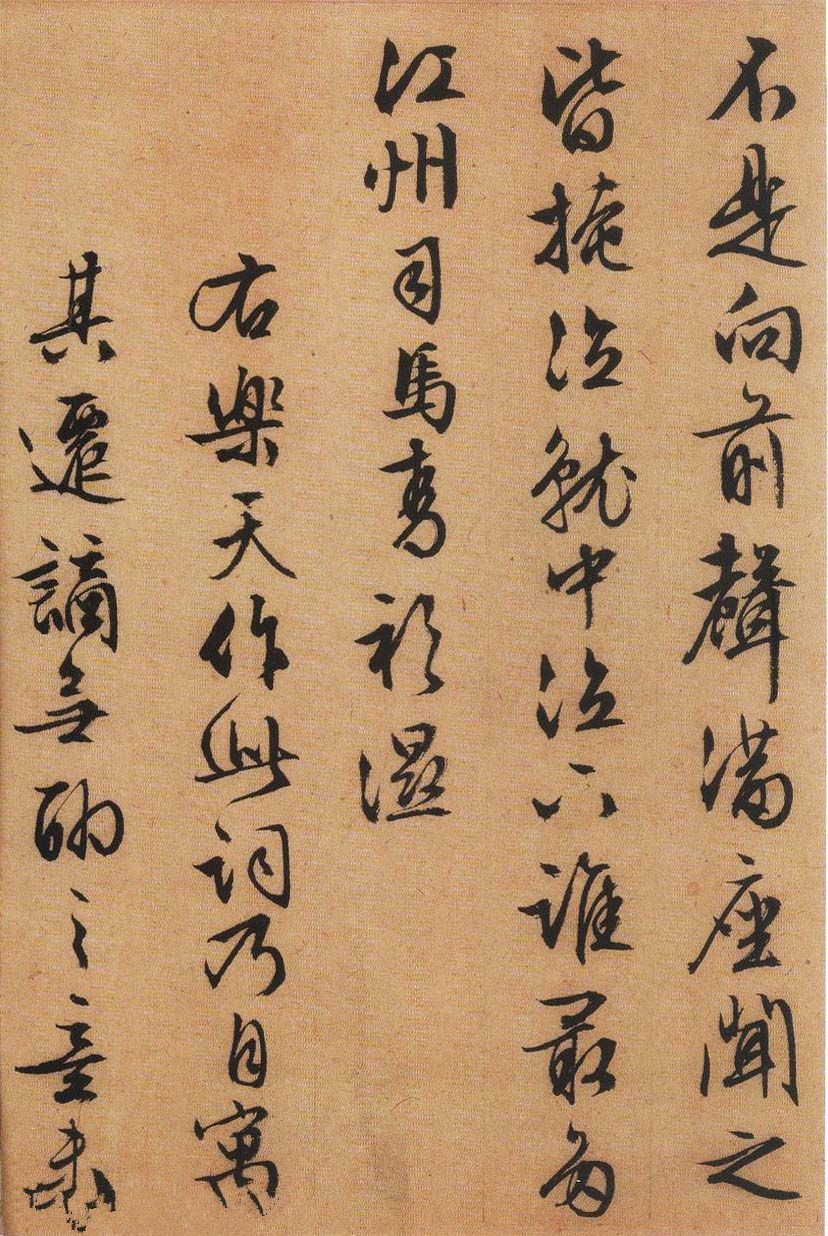 不是向前聲滿座聞之
皆掩泣就中泣下誰最多
江州司馬青衫濕
右樂天作此詞乃自寓
其遷謫無聊之意